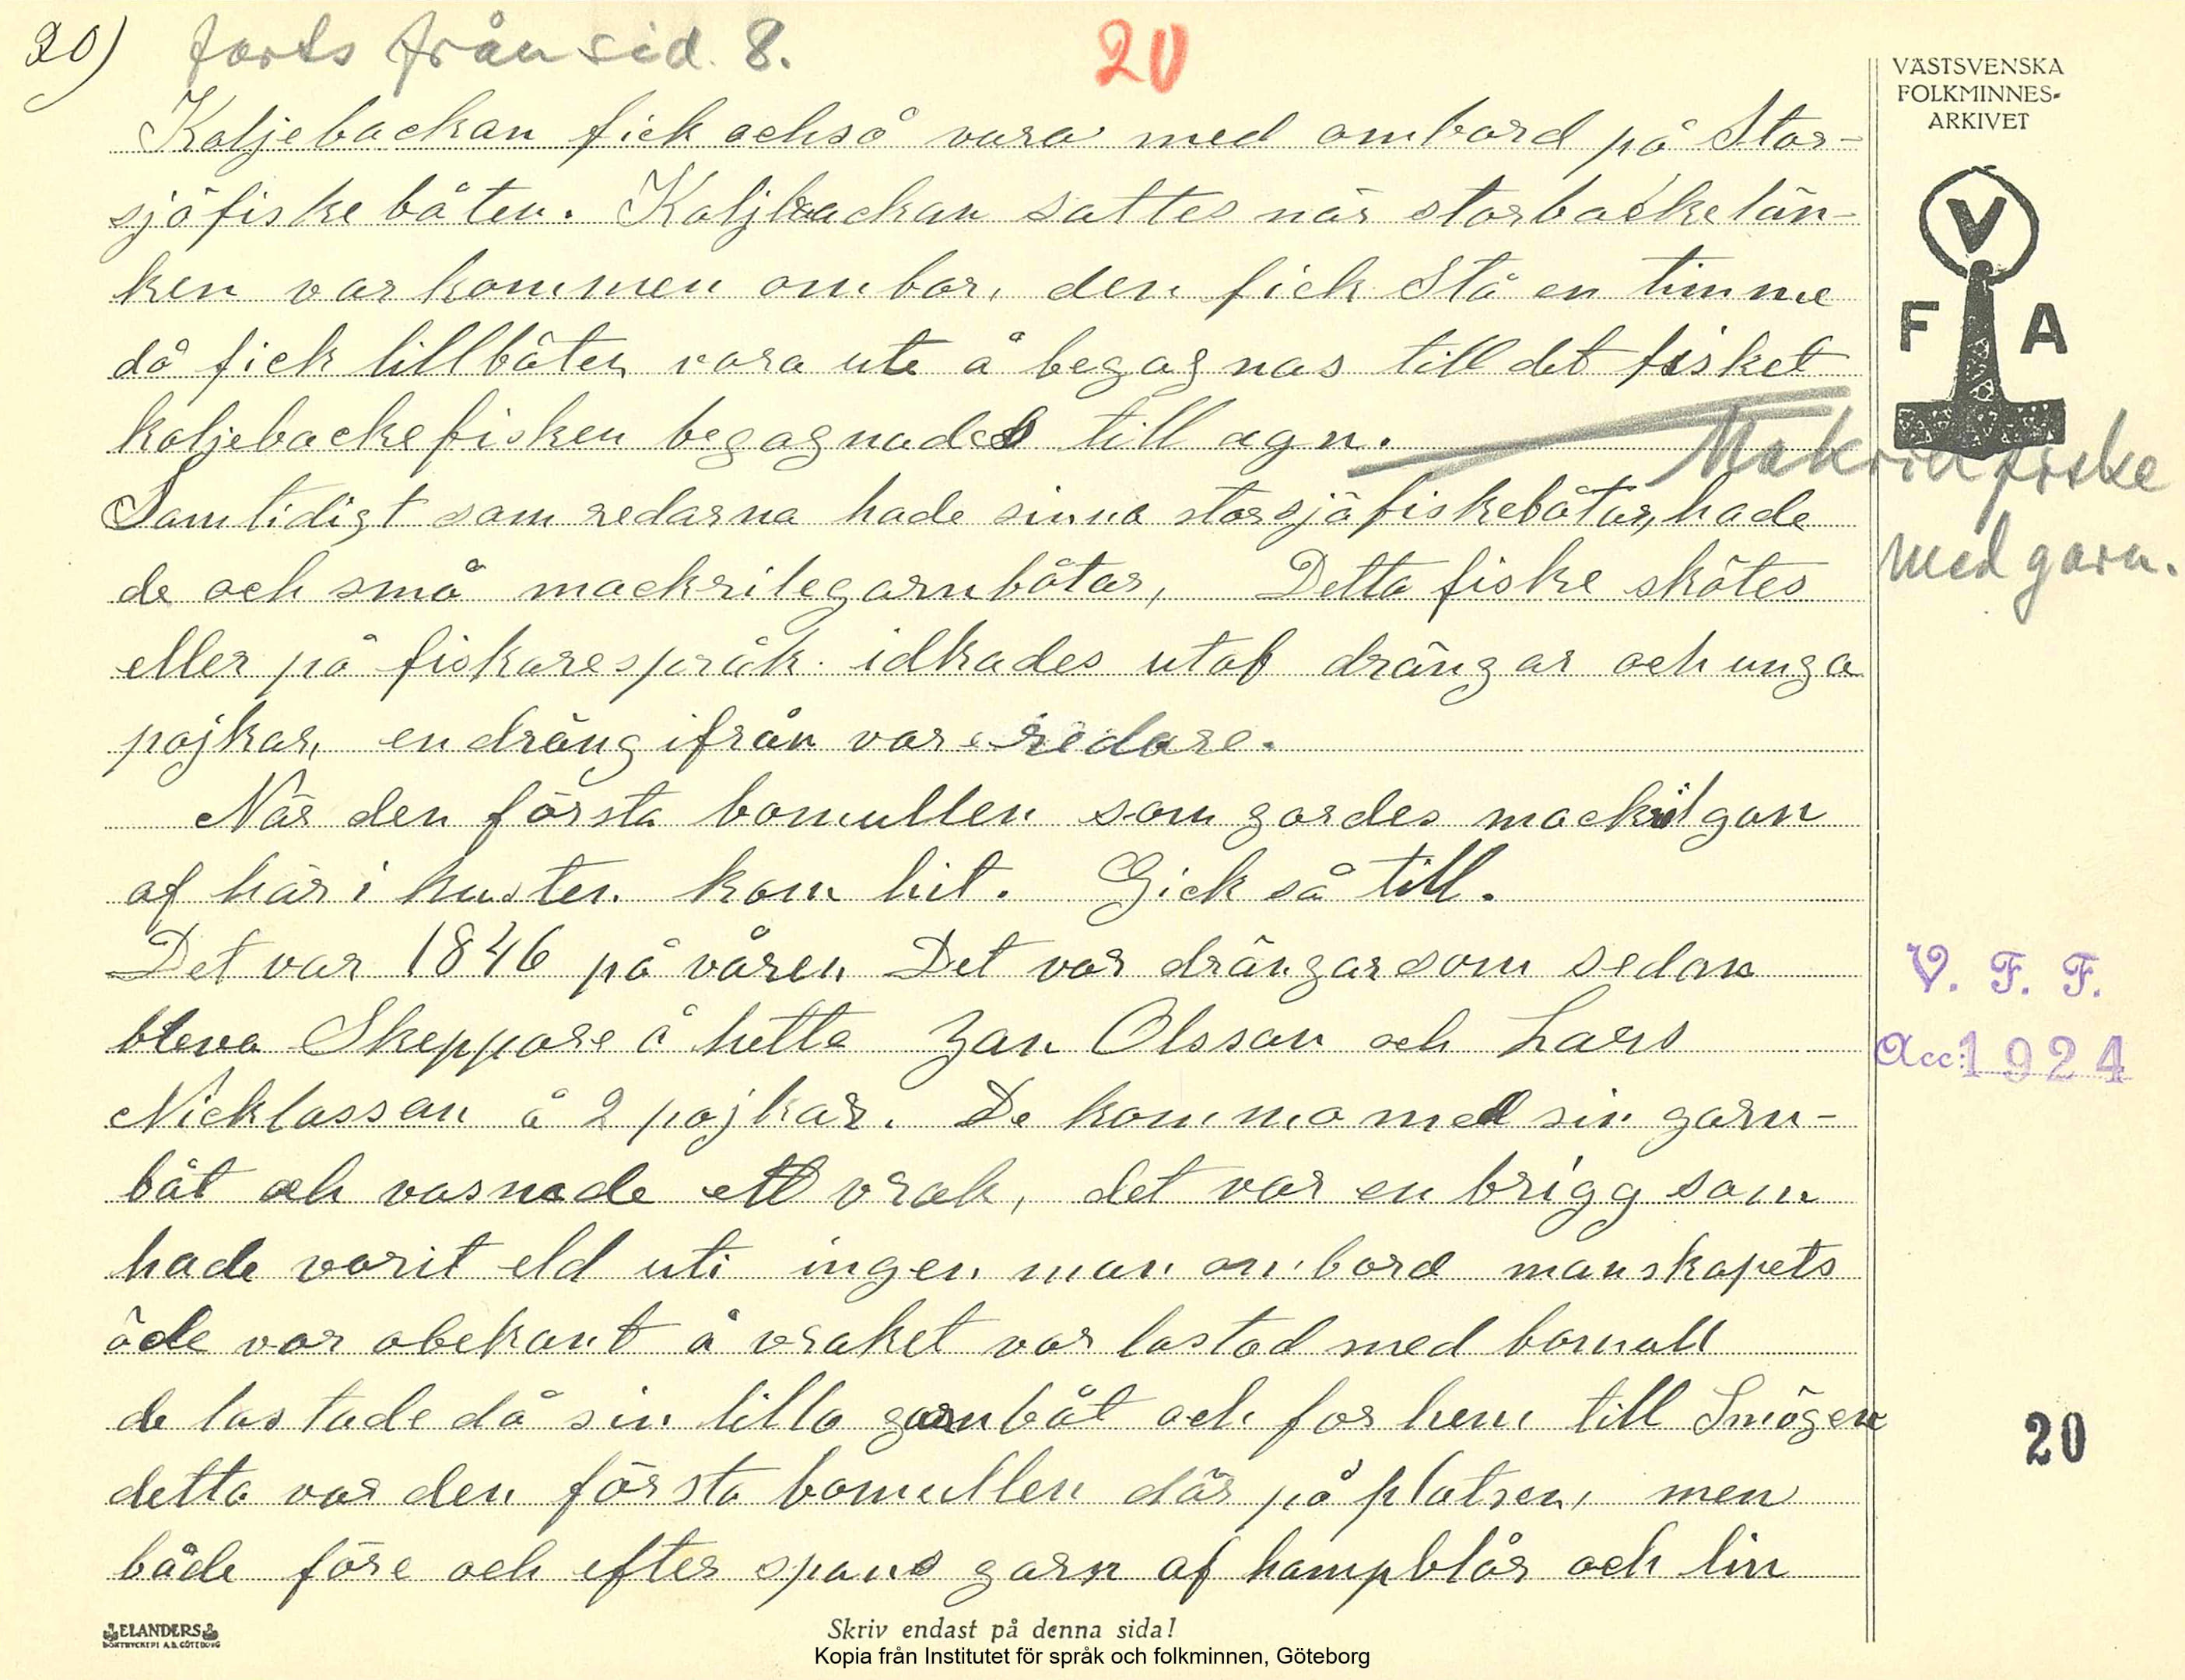 20) forts från sid. 8. 20
Koljebackan fick ochså vara med ombord på Stor-
sjöfiskebåten. Koljbackan sattes når storbackelän-
ken var kommen ombor, den fick Stå en timme
då fick lillbåten vara ute å begagnas till det fisket
koljebackefisken begagnades till agn.
Makrillfiske
med garn.
Samtidigt som redarna hade sinna storsjöfiskebåtar, hade
de och små mackrilegarnbåtar, Detta fiske skötes
eller på fiskarespråk idkades utaf drängar och unga
pojkar, en dräng ifrån vare redare.
När den första bomullen som gordes mackrilgan
af här i kusten kom hit. Gick så till.
Det var 1846 på våren Det var drängar som sedan
bleva Skeppare å hette Jan Olsson och Lars
Nicklassan å 2 pojkar. De kommo med sin garn-
båt och vasnade ett vrak, det var en brigg som
hade varit eld uti ingen man ombord manskapets
öde var obekant å vraket var lastad med bomull
de lastade då sin lilla garnbåt och for hem till Smögen
detta var den första bomullen där på platsen, men
både före och efter spans garn af hampblår och lin
VÄSTSVENSKA
FOLKMINNES-
ARKIVET
V
F A
V. F. F.
Acc: 1924
20
ELANDERS
BOKTRYCKERI A.B. GÖTEBORG
Skriv endast på denna sida!
Kopia från Institutet för språk och folkminnen, Göteborg